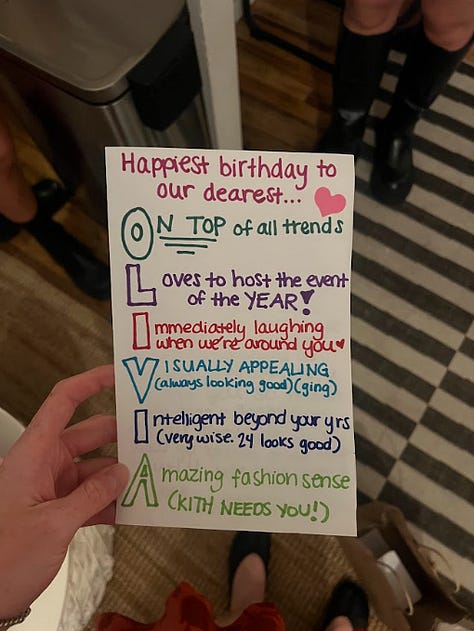 Happiest birthday to
our dearest...
ON TOP of all trends
Loves to host the event
of the YEAR!
Immediately laughing
when we're around you
VISUALLY APPEALING
(always looking good)(ging)
Intelligent beyond your yrs
(very wise. 24 looks good)
Amazing fashion sense
(KITH NEEDS YOU!)